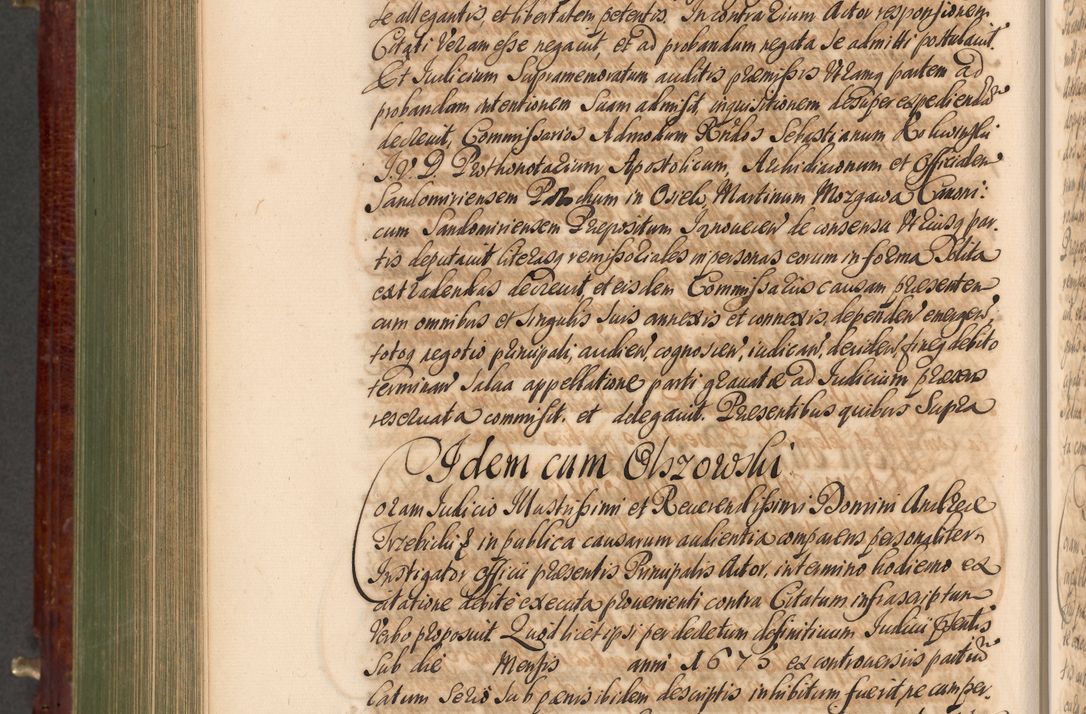 se allegantis, et libertatem petentis. In contrarium Actor responsionem
Citati Veram esse negavit, et ad probandum negata se admitti postulavit.
Et Iudicium Supramemoratum auditis præmissis Utramq partem ad
probandam intentionem Suam admisit, inquisitionem desuper expediendã
decrevit, Commissarios Admodum Rndos Sebastianum
I. V. D. Prothonotarium Apostolicum, Archidiaconum et Officialem
Sandomiriensem Parochum in Osiek, Martinum Mozgawa Canoni:
cum Sandomiriensem Præpositum de consensu Utriusq par-
tis deputavit literasq remissoriales in personas eorum in forma Solita
extradendas decrevit, et eisdem Commissariis causam præsentem
cum omnibus et Singulis Suis annexis et connexis, dependen emergen,
totoq negotio principali, audien, cognoscen, iudican, deciden, fineq debito
terminan Salva appellatione parti gravatæ ad Iudicium præsens
reservata commisit. et delegavit. Præsentibus quibus Supra
Idem cum Olszowski
Coram Iudicio Illustrissimi et Reverendissimi Domini Andreæ
Trzebicki & in publica causarum audientia comparens personaliter
Instigator Officii præsentis Principalis Actor, in termino hodierno ex
citatione debite executa provenienti contra Citatum infrascriptum
Verbo proposuit. Quod licet ipsi per decretum definitivum Iudicii Psentis
Sub die Mensis anni 1675 ex controversiis partiũ
latum Serio Sub pænis ibidem descriptis inhibitum fuerit ne cum per-